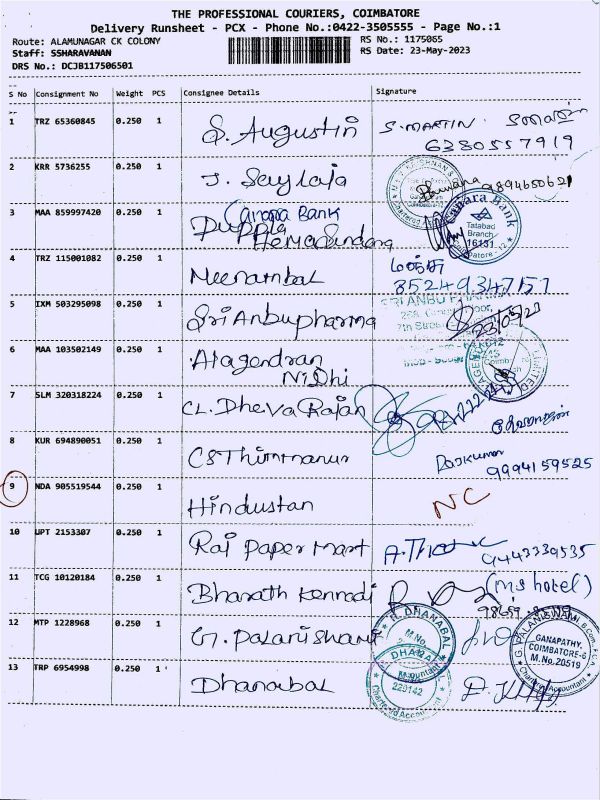 THE PROFESSIONAL COURIERS, COIMBATORE
Delivery Runsheet - PCX - Phone No.:0422-3505555 - Page No.:1
Route: ALAMUNAGAR CK COLONY
RS No.: 1175065
Staff: SSHARAVANAN
RS Date: 23-May-2023
DRS No.: DCJB117506501
S No Consignment No Weight PCS Consignee Details Signature
1 TRZ 65360845 0.250 1 S. Augustin S. MARTIN
6380557919
2 KRR 5736255 0.250 1 J. Saylaja 9894650621
Chartered
3 MAA 859997420 0.250 1 Canara Bank
Hema Sundara
Canara Bank
Tatabad
Branch
16131
4 TRZ 115001082 0.250 1 Meenambal
85249347157
5 IXM 503295098 0.250 1 Sri Anbu pharma
SRI ANBU PHARMA
23/05/23
6 MAA 103502149 0.250 1 Alagendran
Nidhi
7 SLM 320318224 0.250 1 CL. DhevaRajan
8 KUR 694890051 0.250 1 CS Thimmanur
Rajkumar
9994159525
9 NDA 905519544 0.250 1 Hindustan NC
10 UPT 2153307 0.250 1 Raj Paper Mart
9443339535
11 TCG 10120184 0.250 1 Bharath Kennadi
(MS hotel)
12 MTP 1228968 0.250 1 G. Palaniswami
R. DHANABAL
M.No.
G. PALANISWAMI, B.Com, F.C.A.
GANAPATHY,
COIMBATORE-6
M.No.20519
Chartered Accountant
13 TRP 6954998 0.250 1 Dhanabal
DHANABAL
M.No.
229142
Chartered Accountant